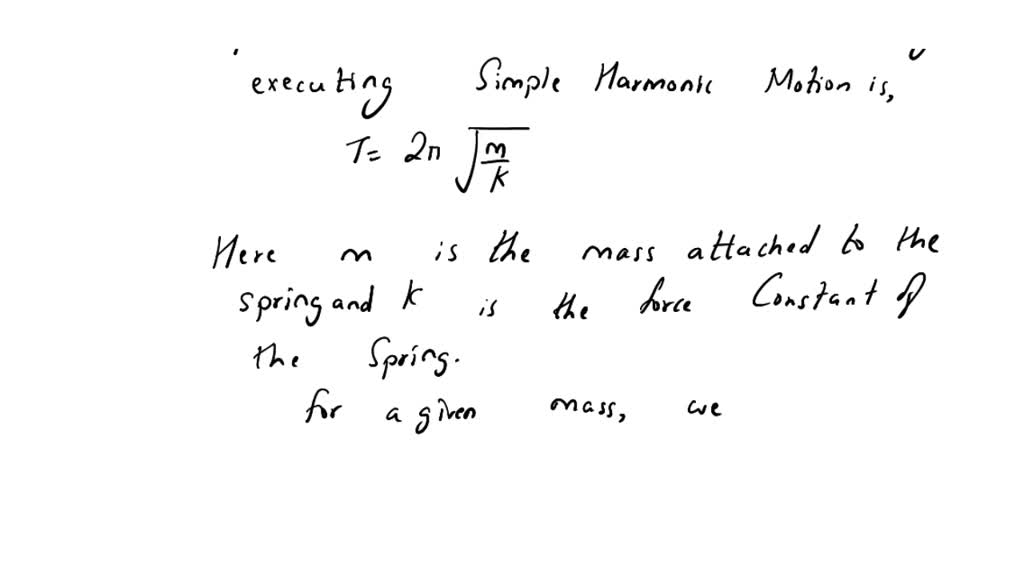 executing Simple Harmonic Motion is,
T= 2π √m/k
Here m is the mass attached to the
spring and k is the force Constant of
the Spring.
for a given mass, we